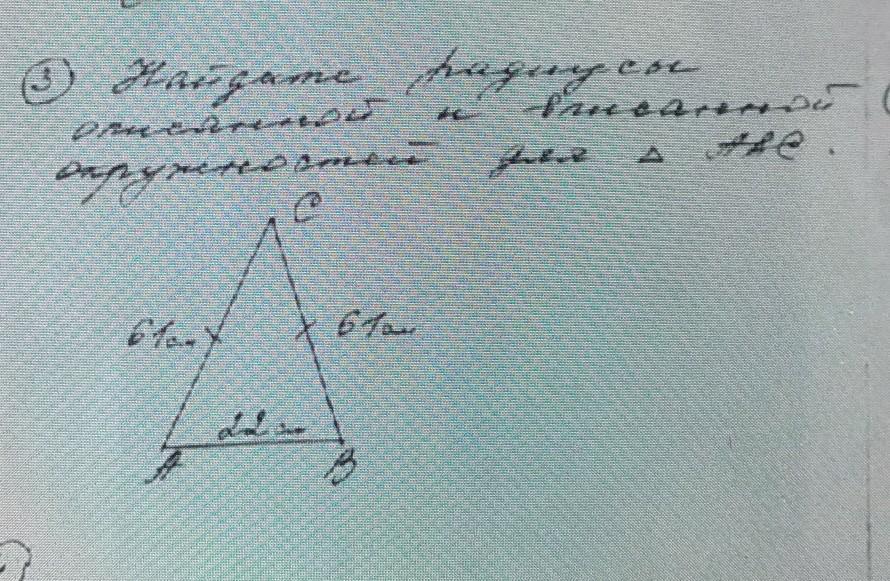 3 Найдите радиусы
описанной и вписанной
окружностей для △ ABC.
C
61см 61см
22см
A B